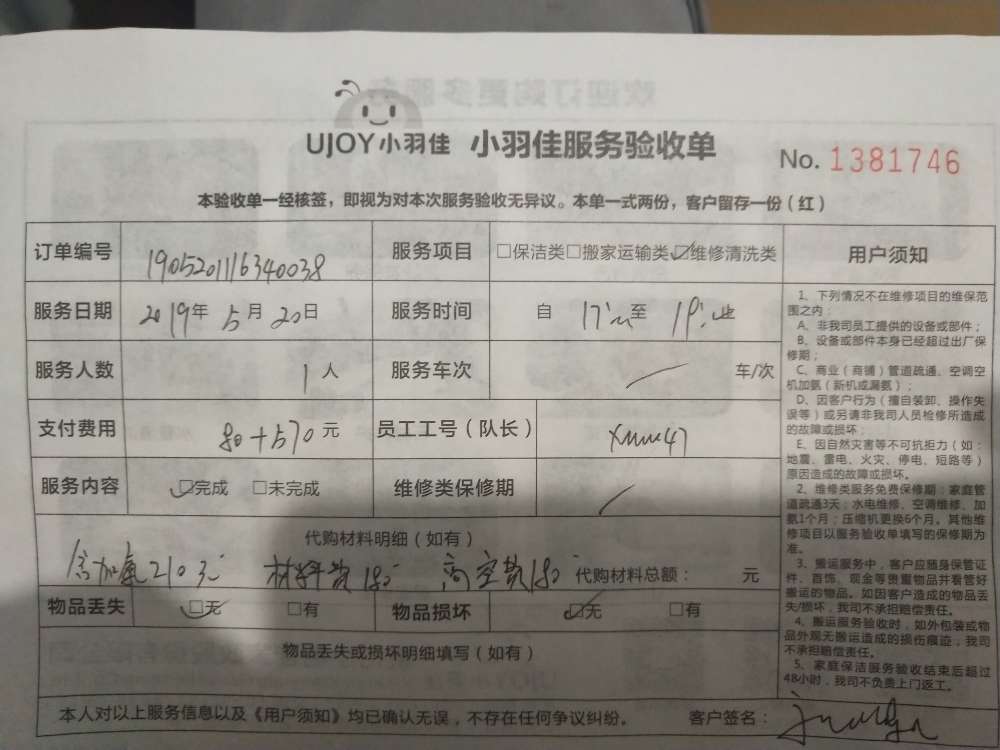 UJOY小羽佳 小羽佳服务验收单 No. 1381746
本验收单一经核签，即视为对本次服务验收无异议。本单一式两份，客户留存一份（红）
订单编号 1905201116340038 服务项目 □保洁类□搬家运输类☑维修清洗类
服务日期 2019年5月20日 服务时间 自 17: 至 19: 止
服务人数 1人 服务车次 / 车/次
支付费用 80+570元 员工工号（队长） xmw47
服务内容 ☑完成 □未完成 维修类保修期 /
代购材料明细（如有）
含加氟210元 材料费180 高空费180 代购材料总额： 元
物品丢失 ☑无 □有 物品损坏 ☑无 □有
物品丢失或损坏明细填写（如有）
本人对以上服务信息以及《用户须知》均已确认无误，不存在任何争议纠纷。 客户签名：
用户须知
1、下列情况不在维修项目的维保范
围之内：
A、非我司员工提供的设备或部件；
B、设备或部件本身已经超过出厂保
修期；
C、商业（商铺）管道疏通、空调空
机加氨（新机或漏氨）；
D、因客户行为（擅自装卸、操作失
误等）或另请非我司人员检修所造成
的故障或损坏；
E、因自然灾害等不可抗拒力（如：
地震、雷电、火灾、停电、短路等）
原因造成的故障或损坏。
2、维修类服务免费保修期：家庭管
道疏通3天；水电维修、空调维修、加
氨1个月；压缩机更换6个月。其他维
修项目以服务验收单填写的保修期为
准。
3、搬运服务中，客户应随身保管证
件、首饰、现金等贵重物品并看管好
搬运的物品。如因客户造成的物品丢
失/损坏，我司不承担赔偿责任。
4、搬运服务验收时，如外包装或物
品外观无搬运造成的损伤痕迹，我司
不承担赔偿责任。
5、家庭保洁服务验收结束后超过
48小时，我司不负责上门返工。